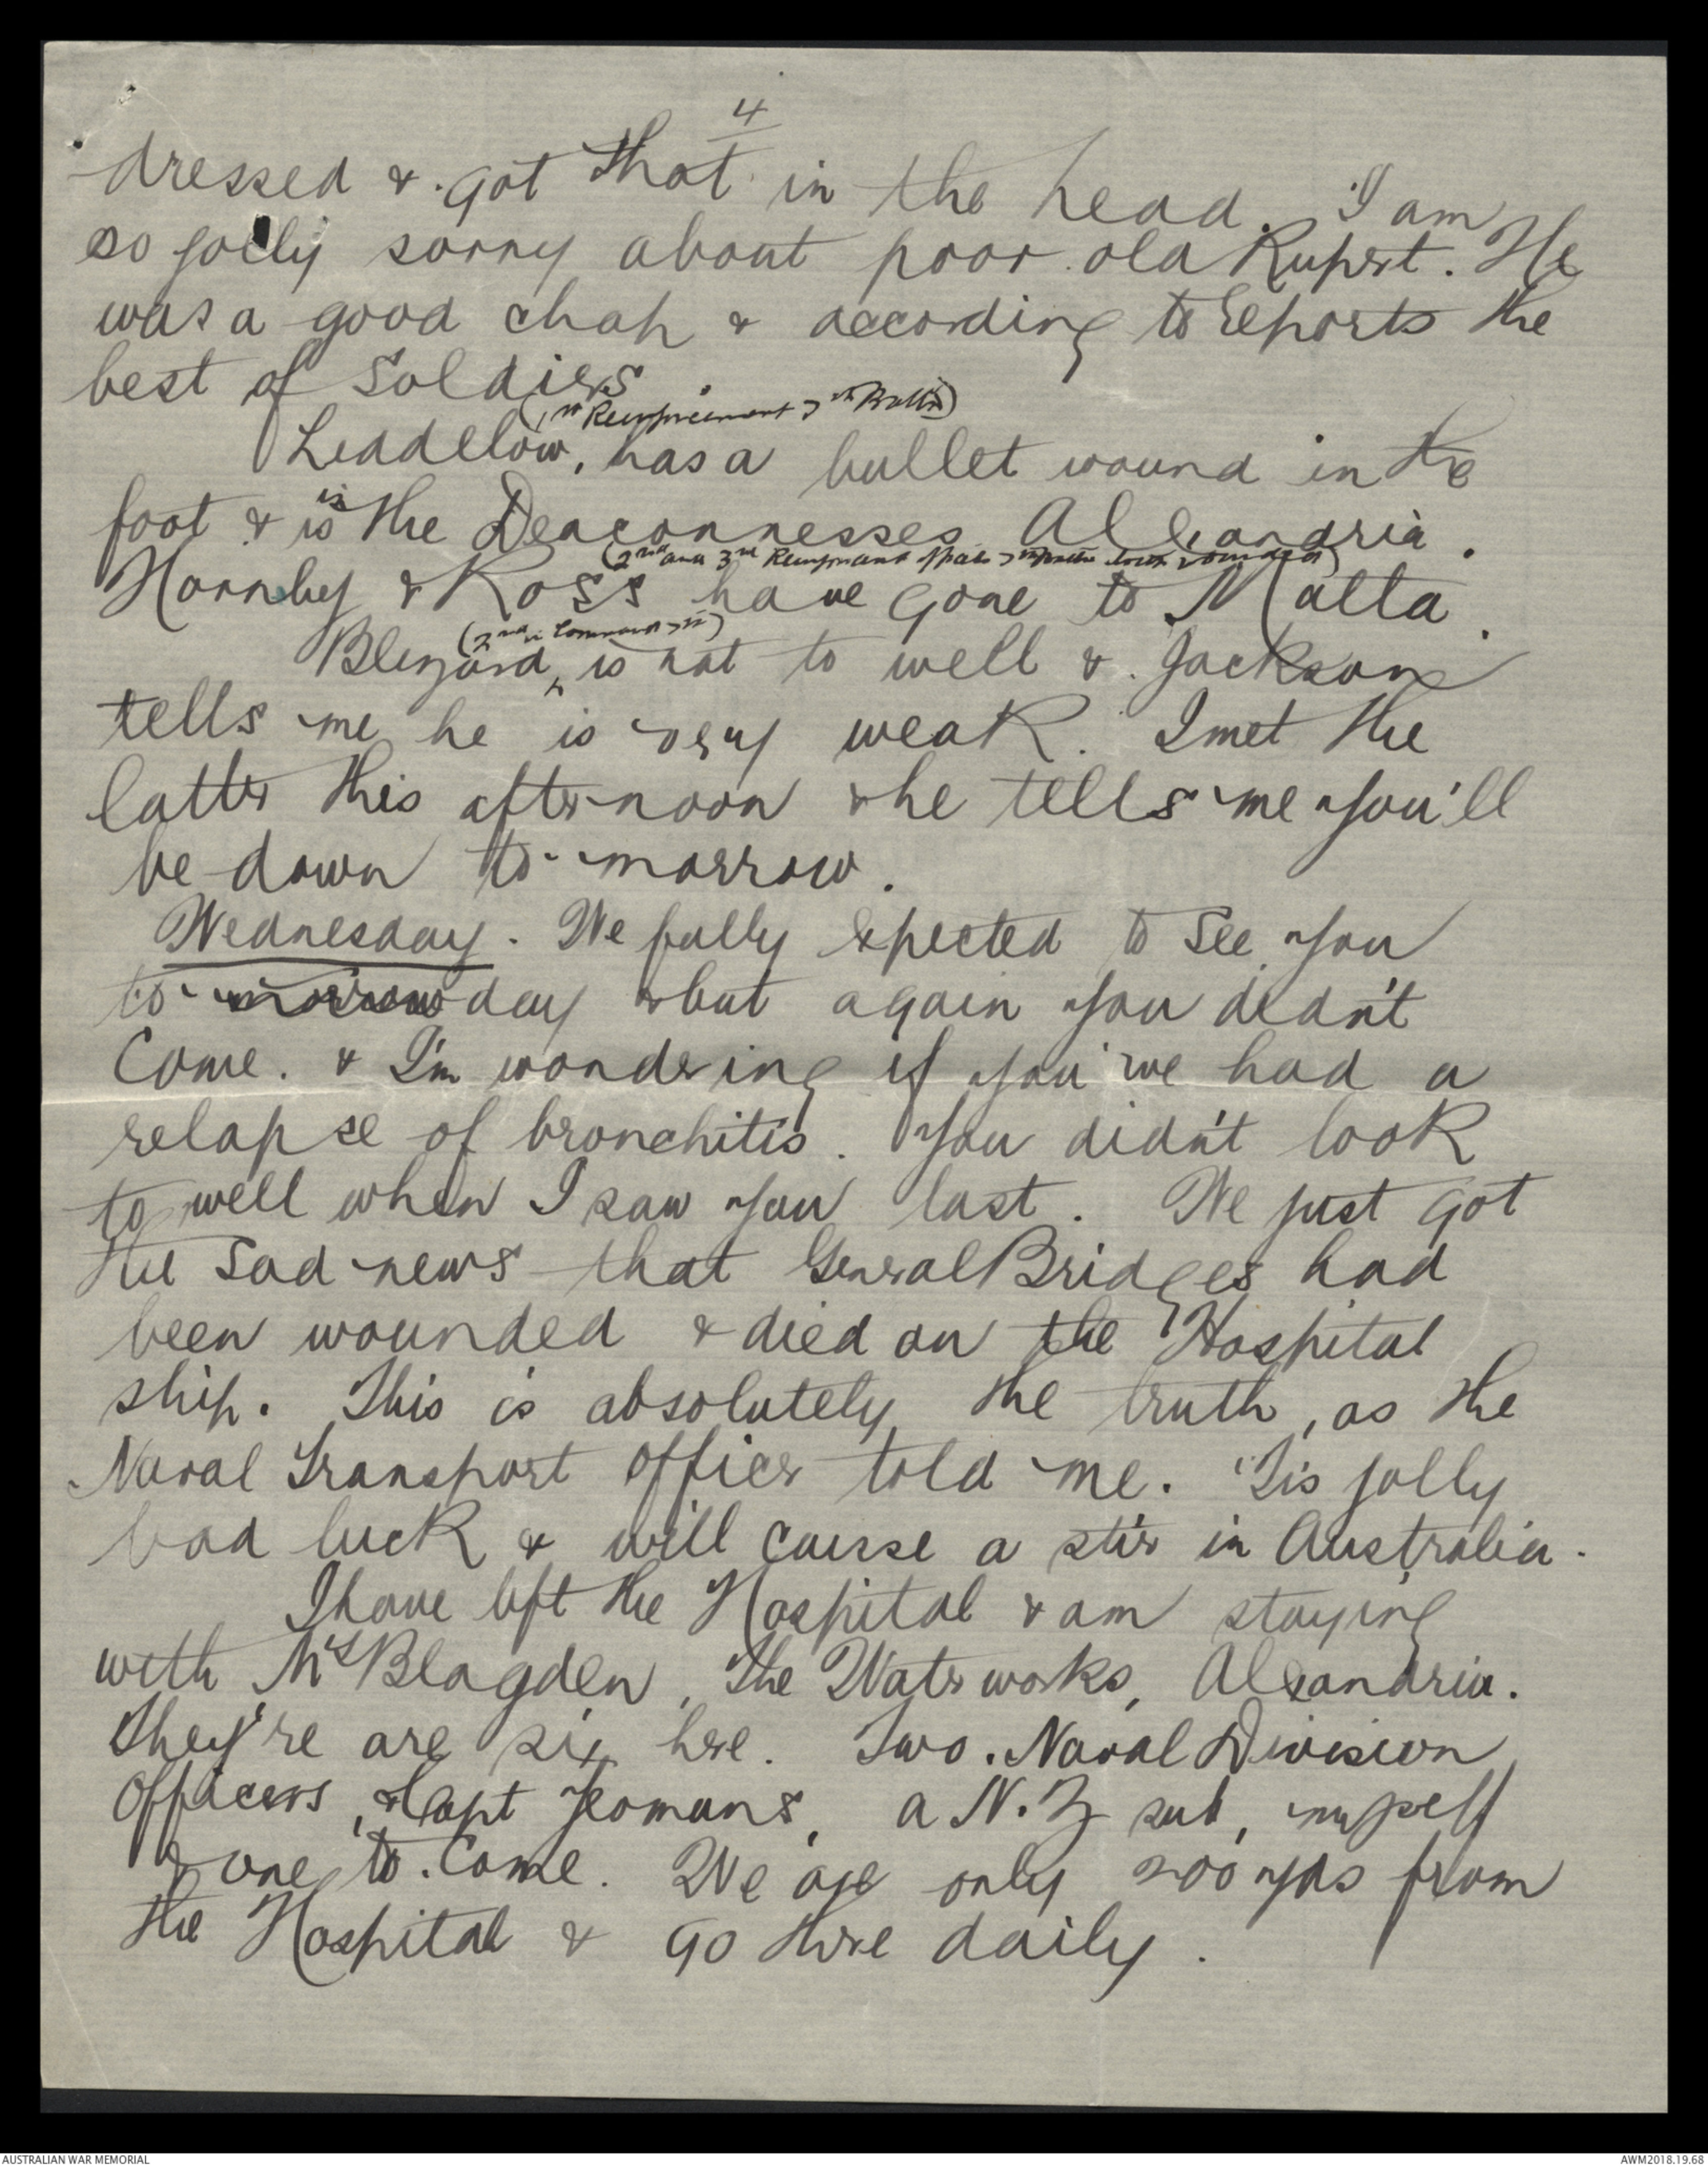 4
dressed & got that in the head. I am
so jolly sorry about poor old Rupert. He
was a good chap & according to reports the
best of soldiers.
(1st Reinforcement 7th Battn)
Leadelow, has a bullet wound in the
foot & is in the Deaconnesses Alexandria.
(2nd and 3rd Reinforcement both wounded)
Hornby & Ross have gone to Malta.
(2nd in Command 7th)
Blezard, is not to well & Jackson
tells me he is very weak. I met the
latter this afternoon & he tells me you'll
be down to-morrow.
Wednesday. We fully expected to see you
to-morrow day & but again you didn't
come. & I'm wondering if you've had a
relapse of bronchitis. You didn't look
to well when I saw you last. We just got
the sad news that General Bridges had
been wounded & died on the Hospital
ship. This is absolutely the truth, as the
Naval Transport officer told me. 'Tis jolly
bad luck & will cause a stir in Australia.
I have left the Hospital & am staying
with Mrs Blagden, The Waterworks, Alexandria.
They're are six here. Two Naval Division
Officers, & Capt Yeomans, a N.Z sub, myself
& one to come. We are only 200 yds from
the Hospital & go there daily.
AUSTRALIAN WAR MEMORIAL
AWM2018.19.68